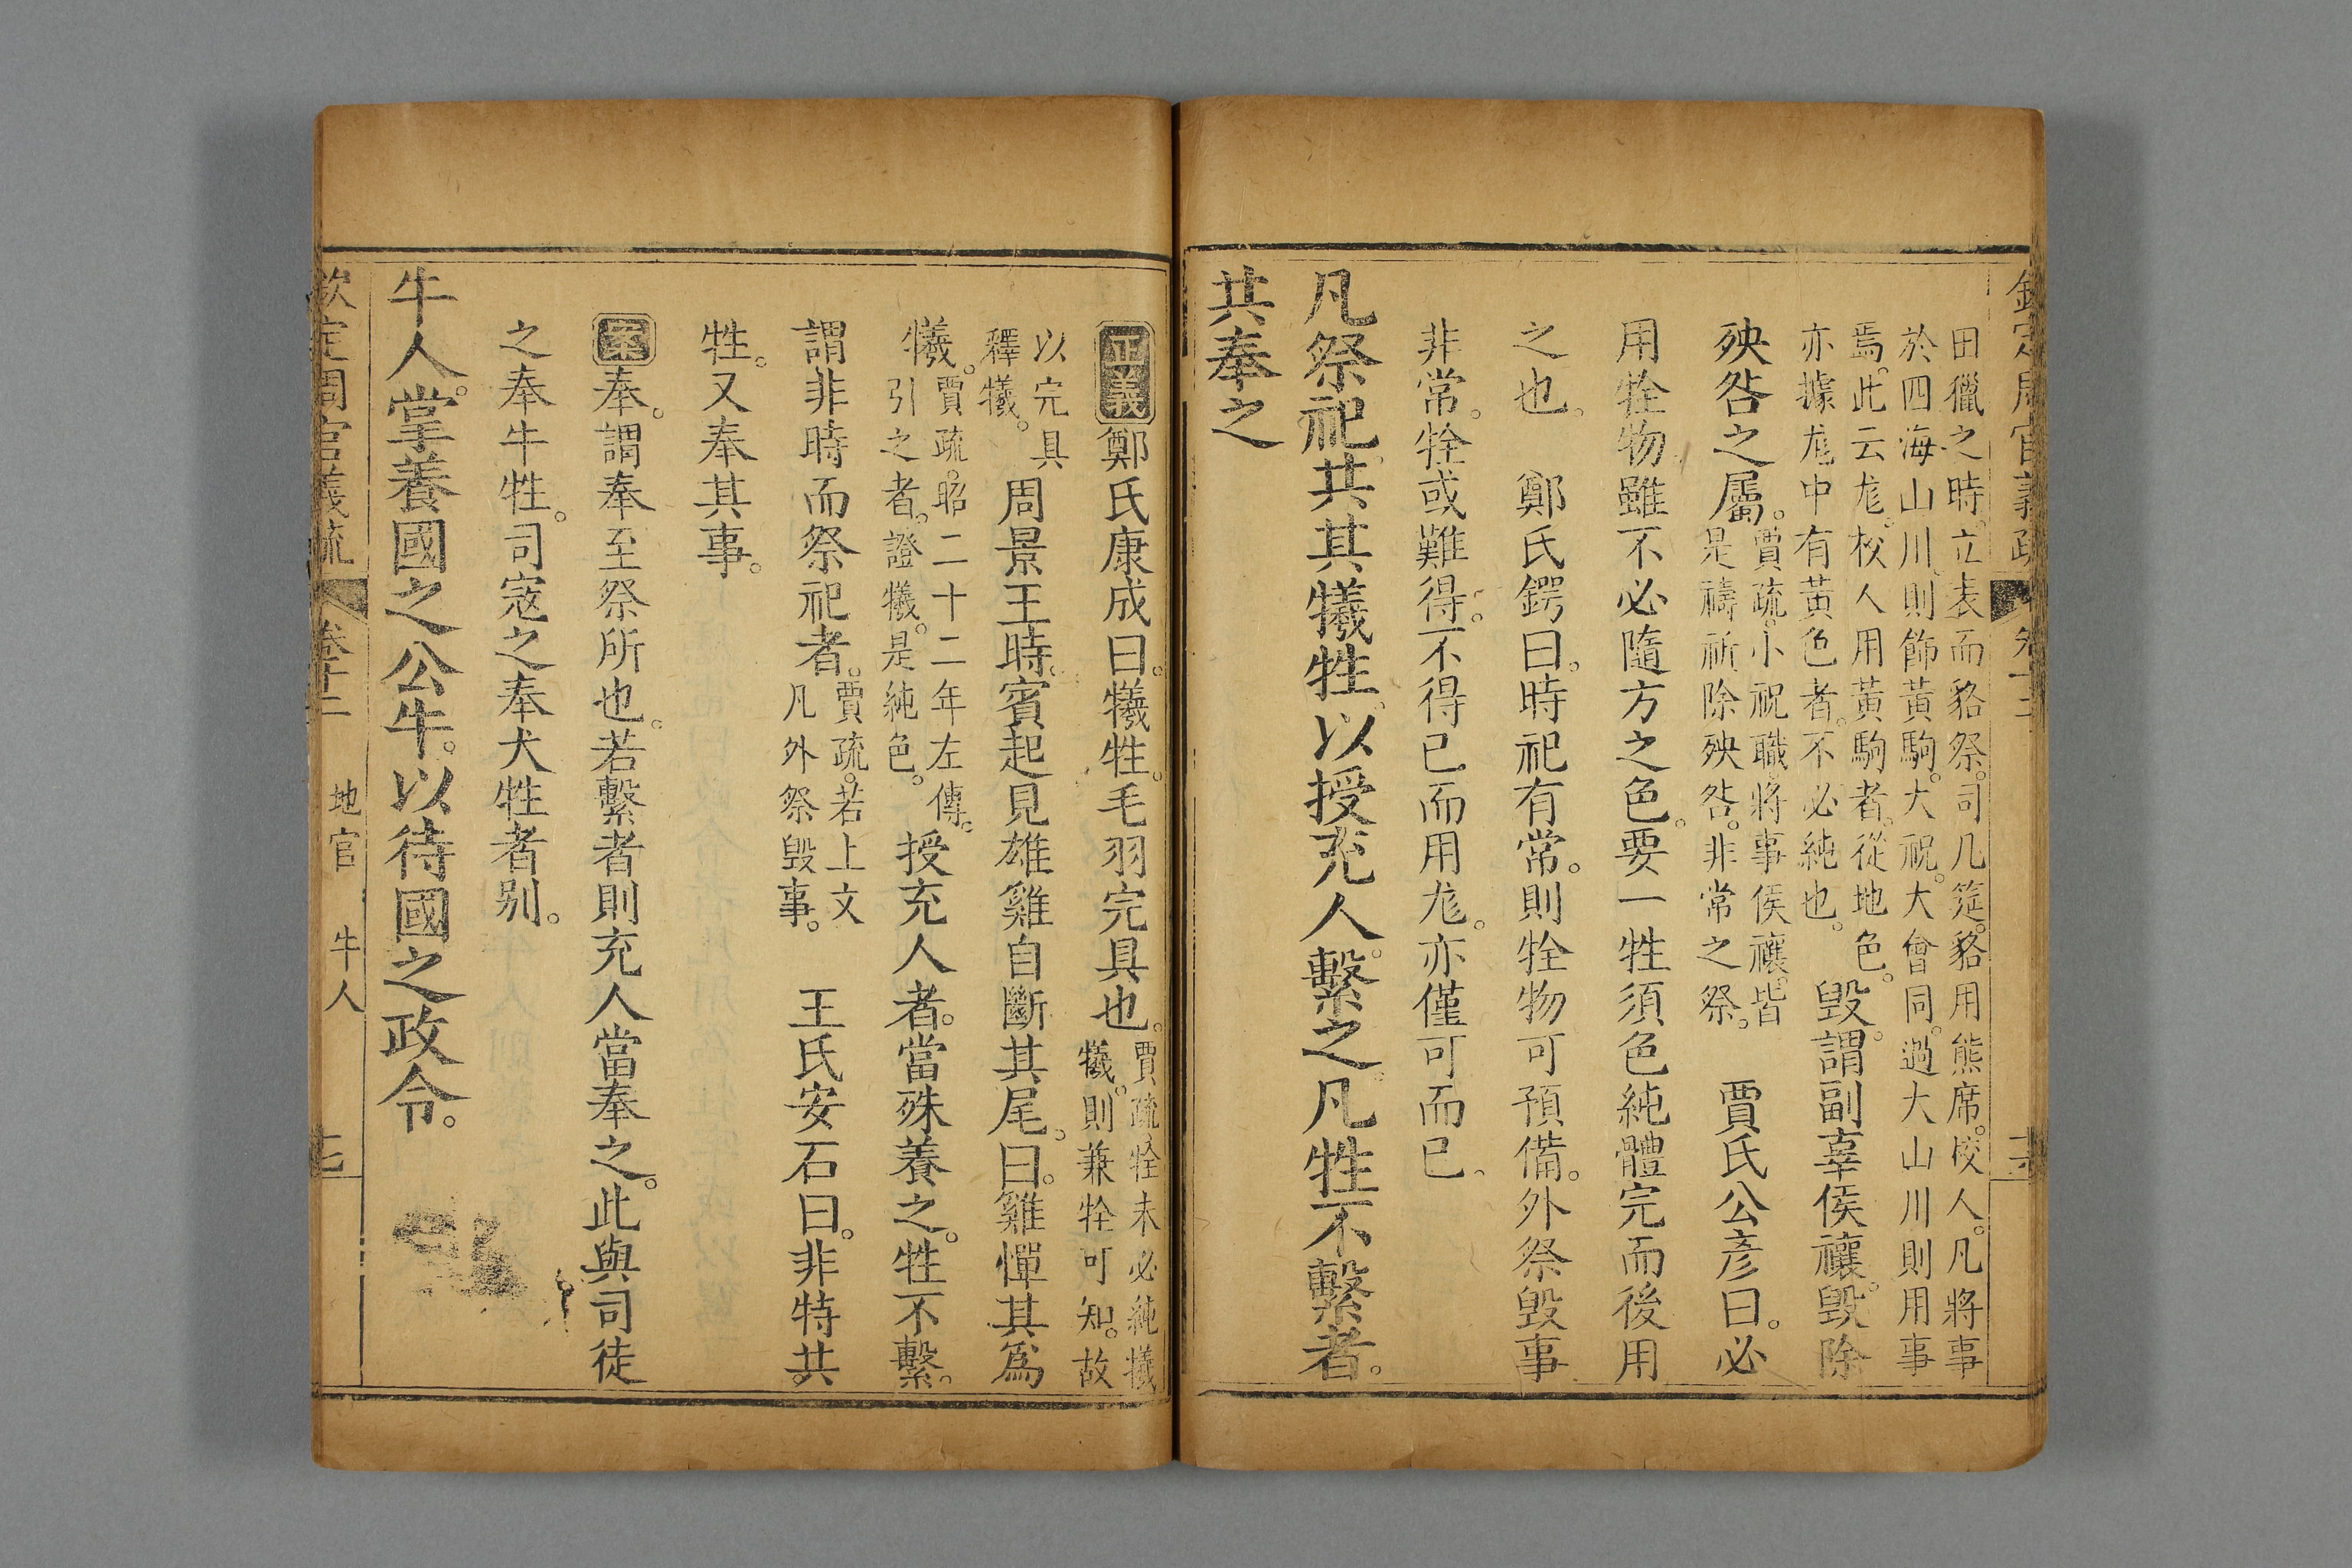 欽定周官義疏 卷十二
田獵之時。立表而貉祭。司几筵。貉用熊席。校人。凡將事
於四海山川。則飾黃駒。大祝。大會同。過大山川則用事
焉。此云尨。校人用黃駒者。從地色。
亦據尨中有黃色者。不必純也。
毁。謂副辜侯禳。毁除
殃咎之屬。
賈疏。小祝職。將事侯禳。皆
是禱祈除殃咎。非常之祭。
賈氏公彥曰。必
用牷物雖不必隨方之色。要一牲須色純體完而後用
之也。 鄭氏鍔曰。時祀有常。則牷物可預備。外祭毁事
非常。牷或難得。不得已而用尨。亦僅可而已。
凡祭祀。共其犧牲。以授充人繫之。凡牲不繫者。
共奉之
正義鄭氏康成曰。犧牲。毛羽完具也。
賈疏牷未必純犧
犧。則兼牷可知。故
以完具
釋犧。
周景王時。賓起見雄雞自斷其尾。曰。雞憚其爲
犧。
賈疏。昭二十二年左傳。
引之者。證犧。是純色。
授充人者。當殊養之。牲不繫。
謂非時而祭祀者。
賈疏。若上文
凡外祭毁事。
王氏安石曰。非特共
牲。又奉其事。
案奉。謂奉至祭所也。若繫者則充人當奉之。此與司徒
之奉牛牲。司寇之奉犬牲者别。
牛人。掌養國之公牛。以待國之政令。
欽定周官義疏 卷十二 地官 牛人